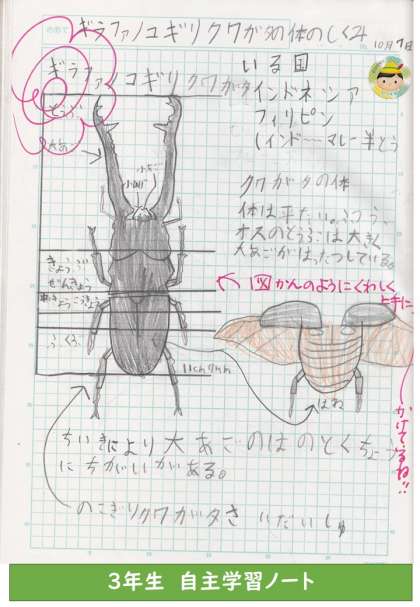 ギラファノコギリクワガタの体のしくみ
10月7日
ギラファノコギリクワガタ
いる国
インドネシア
フィリピン
(インド……マレー半とう
大あご
小あご
クワガタの体
体は平たい。ふつう、
オスのとうぶは大きく
大あごがはったつしている。
図かんのようにくわしく
上手に
かけてるね!!
きょうぶ
ぜんきょう
ふくぶ
11cm7mm
はね
ちいきにより大あごのはのとくちょう
にちがいがある。
のこぎりクワガタさいだいしゅ
3年生 自主学習ノート